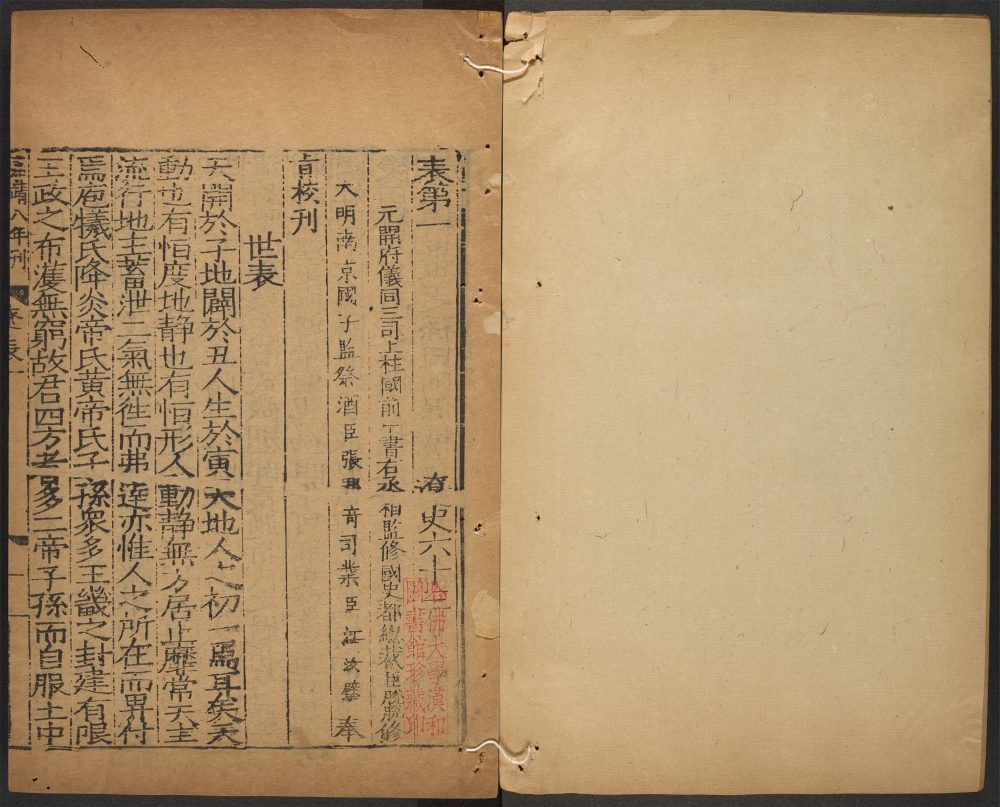 表第一 遼史六十
元開府儀同三司上柱國前丁書右丞相監修國史都總裁臣脫脫修
大明南京國子監祭酒臣張 司業臣江汝璧奉
旨校刊
世表
天開於子地闢於丑人生於寅天地人之初一焉耳矣天
動也有恒度地静也有恒形人動静無方居止靡常天主
流行地主蓄泄二氣無徃而弗達亦惟人之所在而畀付
焉庖犧氏降炎帝氏黄帝氏子孫衆多王畿之封建有限
王政之布濩無窮故君四方者多二帝子孫而自服土中
嘉靖八年刊 表一
哈佛大學漢和圖書館珍藏印